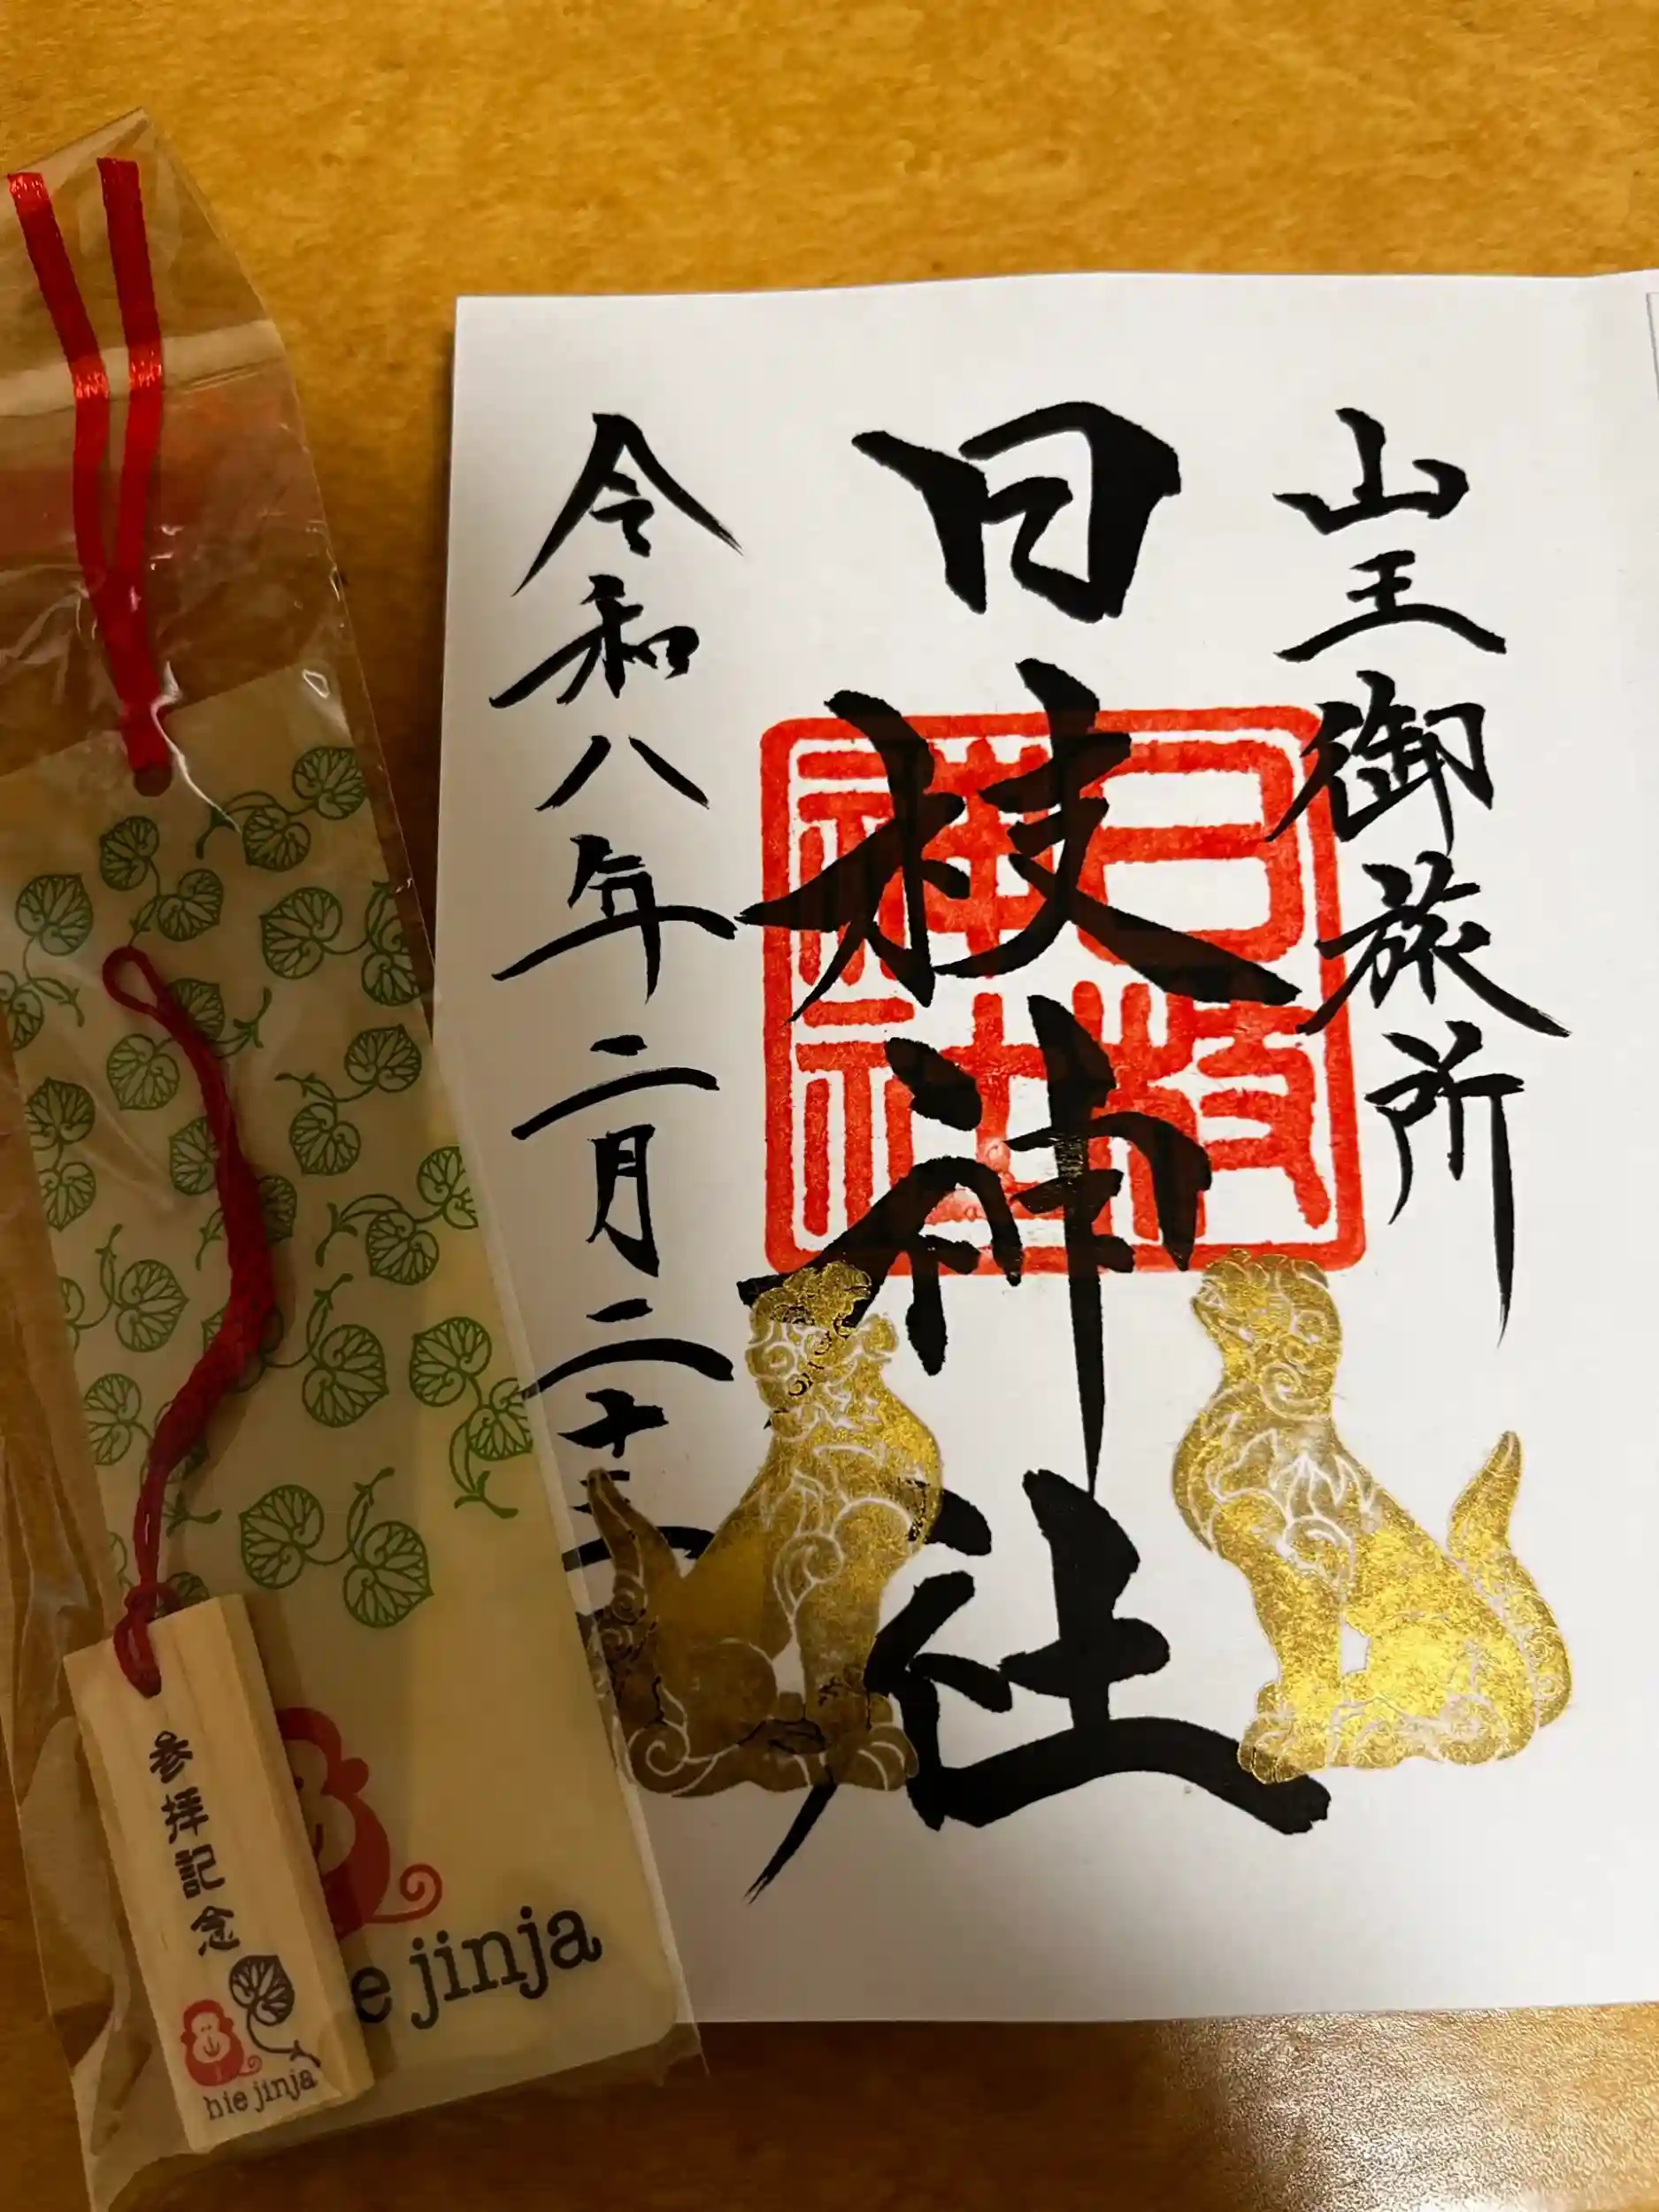 山王御旅所
日枝神社
日枝神社
令和八年二月二十
参拝記念
hie jinja
e jinja